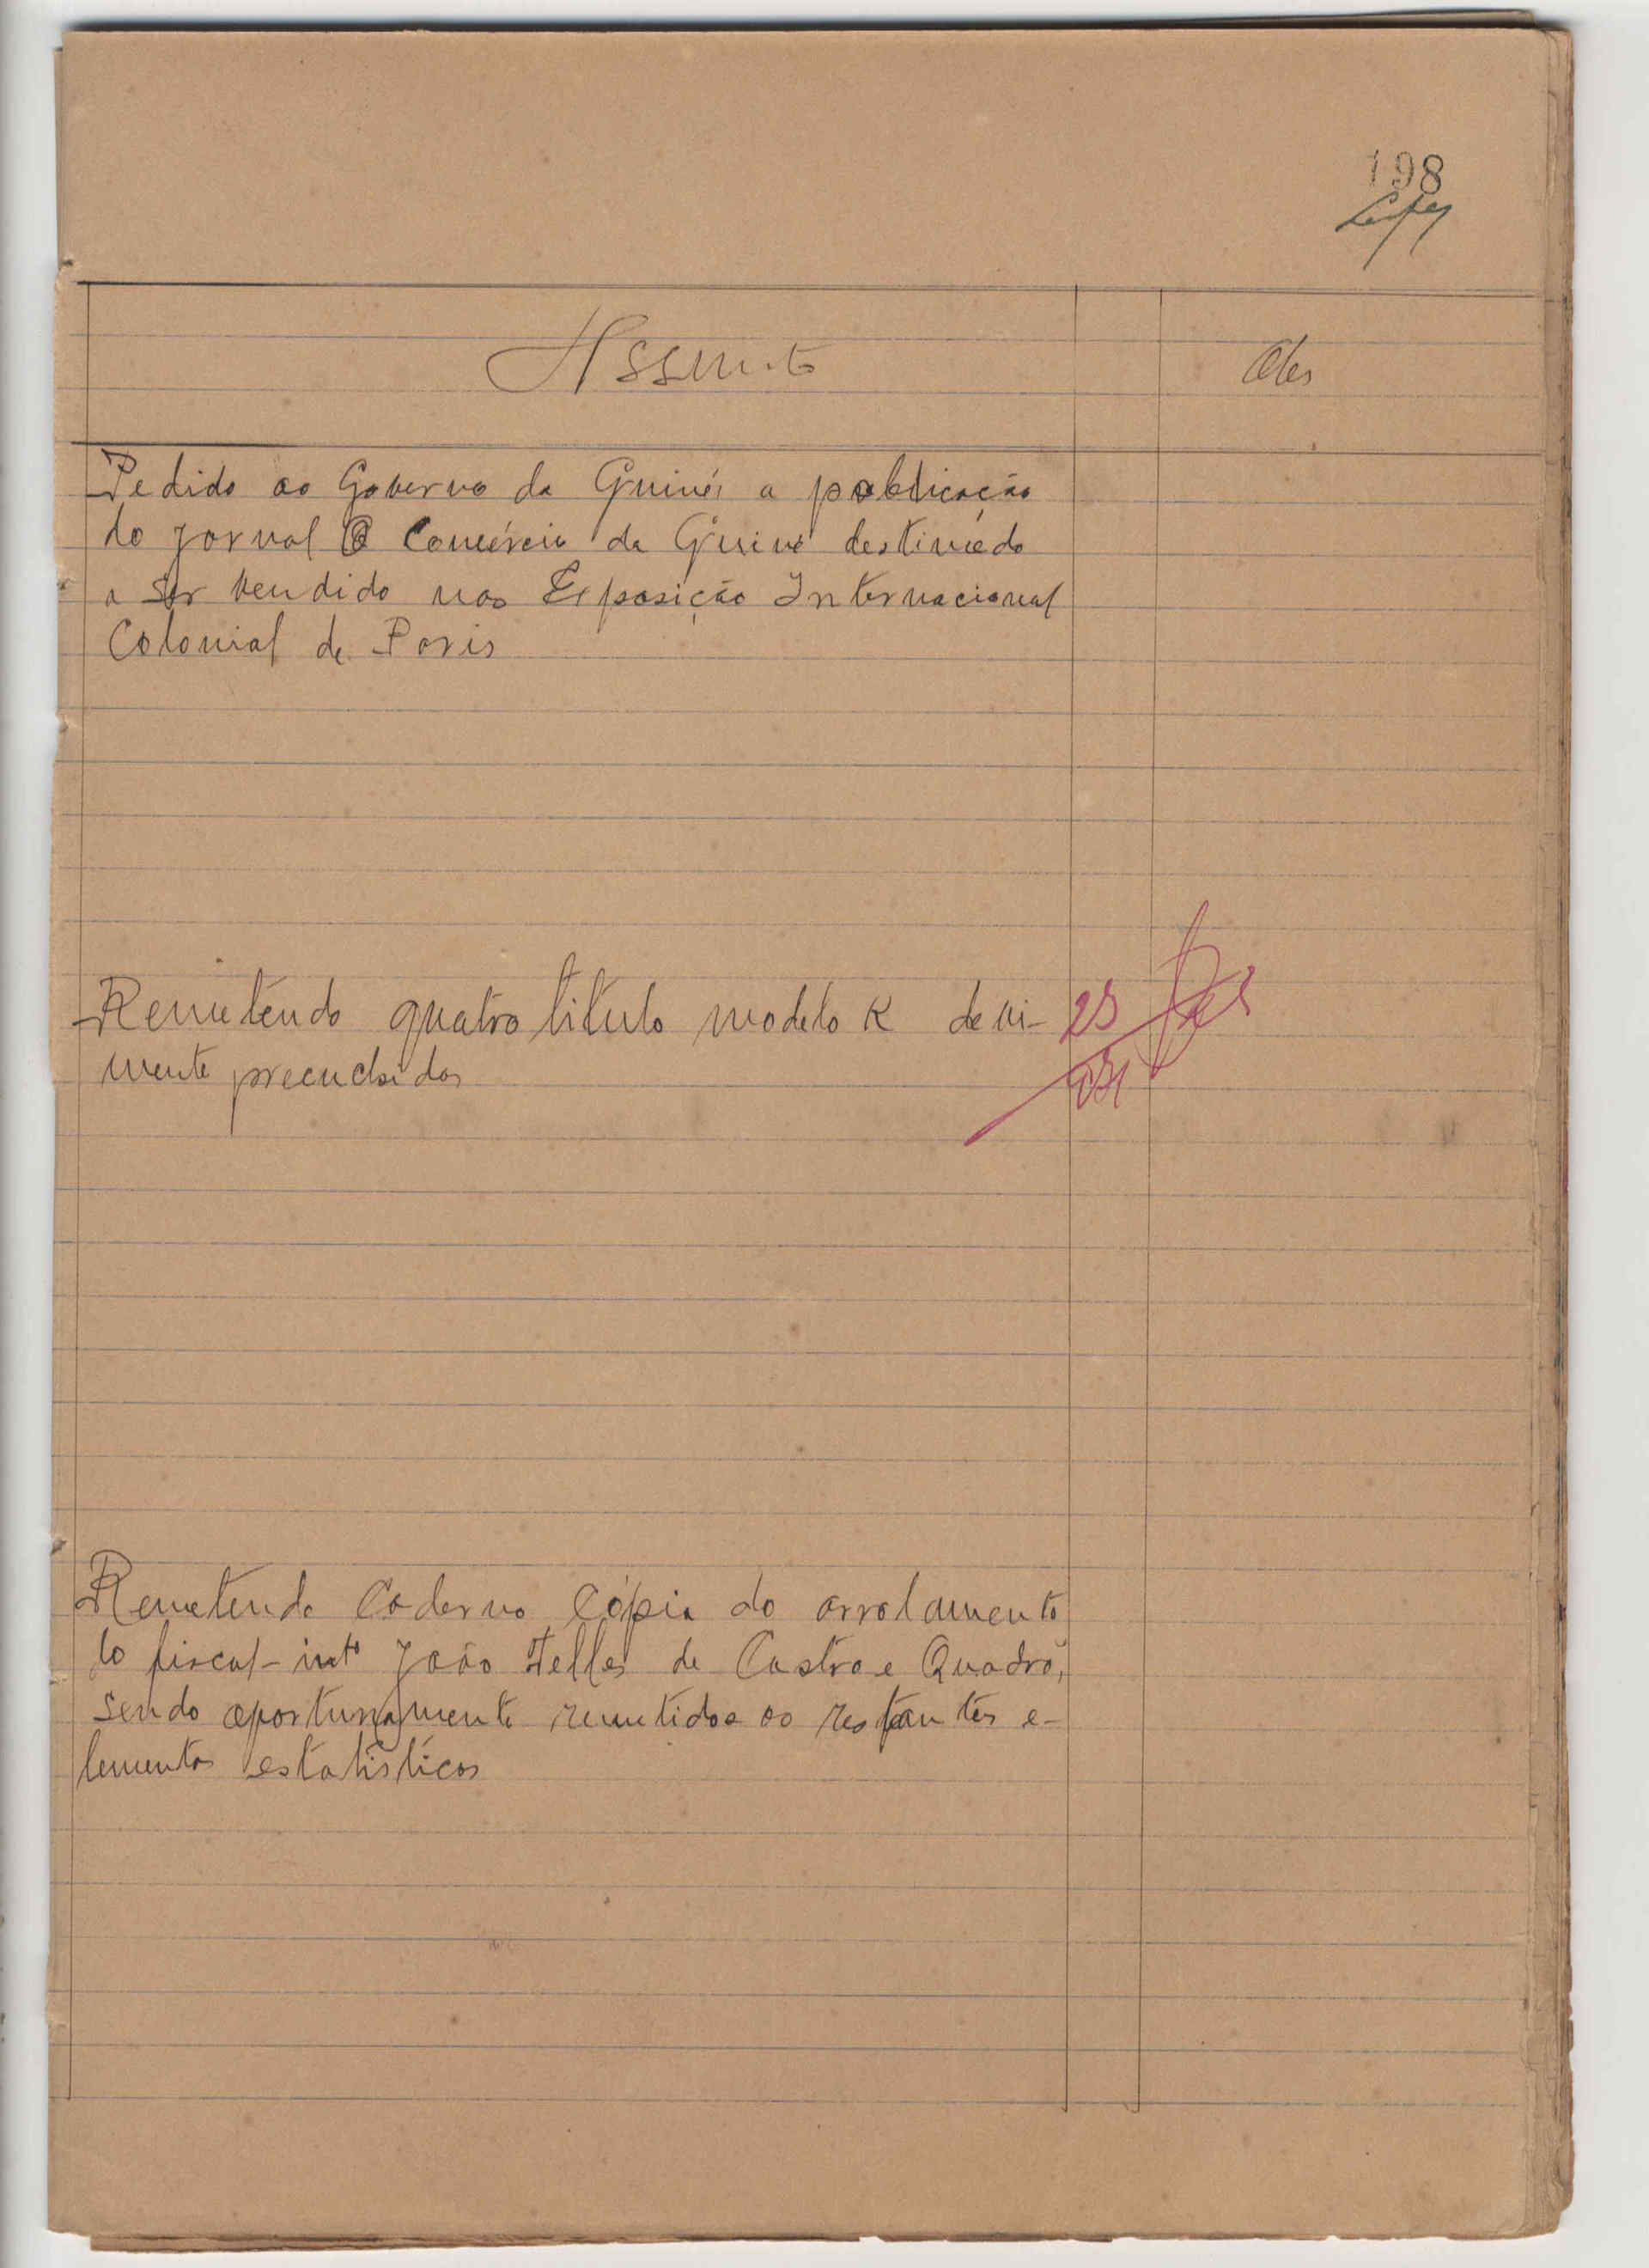 198
Assunto
Obs
Pedido ao Governo da Guiné, a publicação
do jornal O Comércio da Guiné destinado
a ser vendido nas Exposição Internacional
Colonial de Paris
Remetendo quatro titulo modelo K devi-
mente preenchidos
23
Remetendo Caderno Cópia do arrolamento
do fiscal-intº João Telles de Castro e Quadro,
sendo oportunamente remetidos os restantes e-
lementos estatísticos